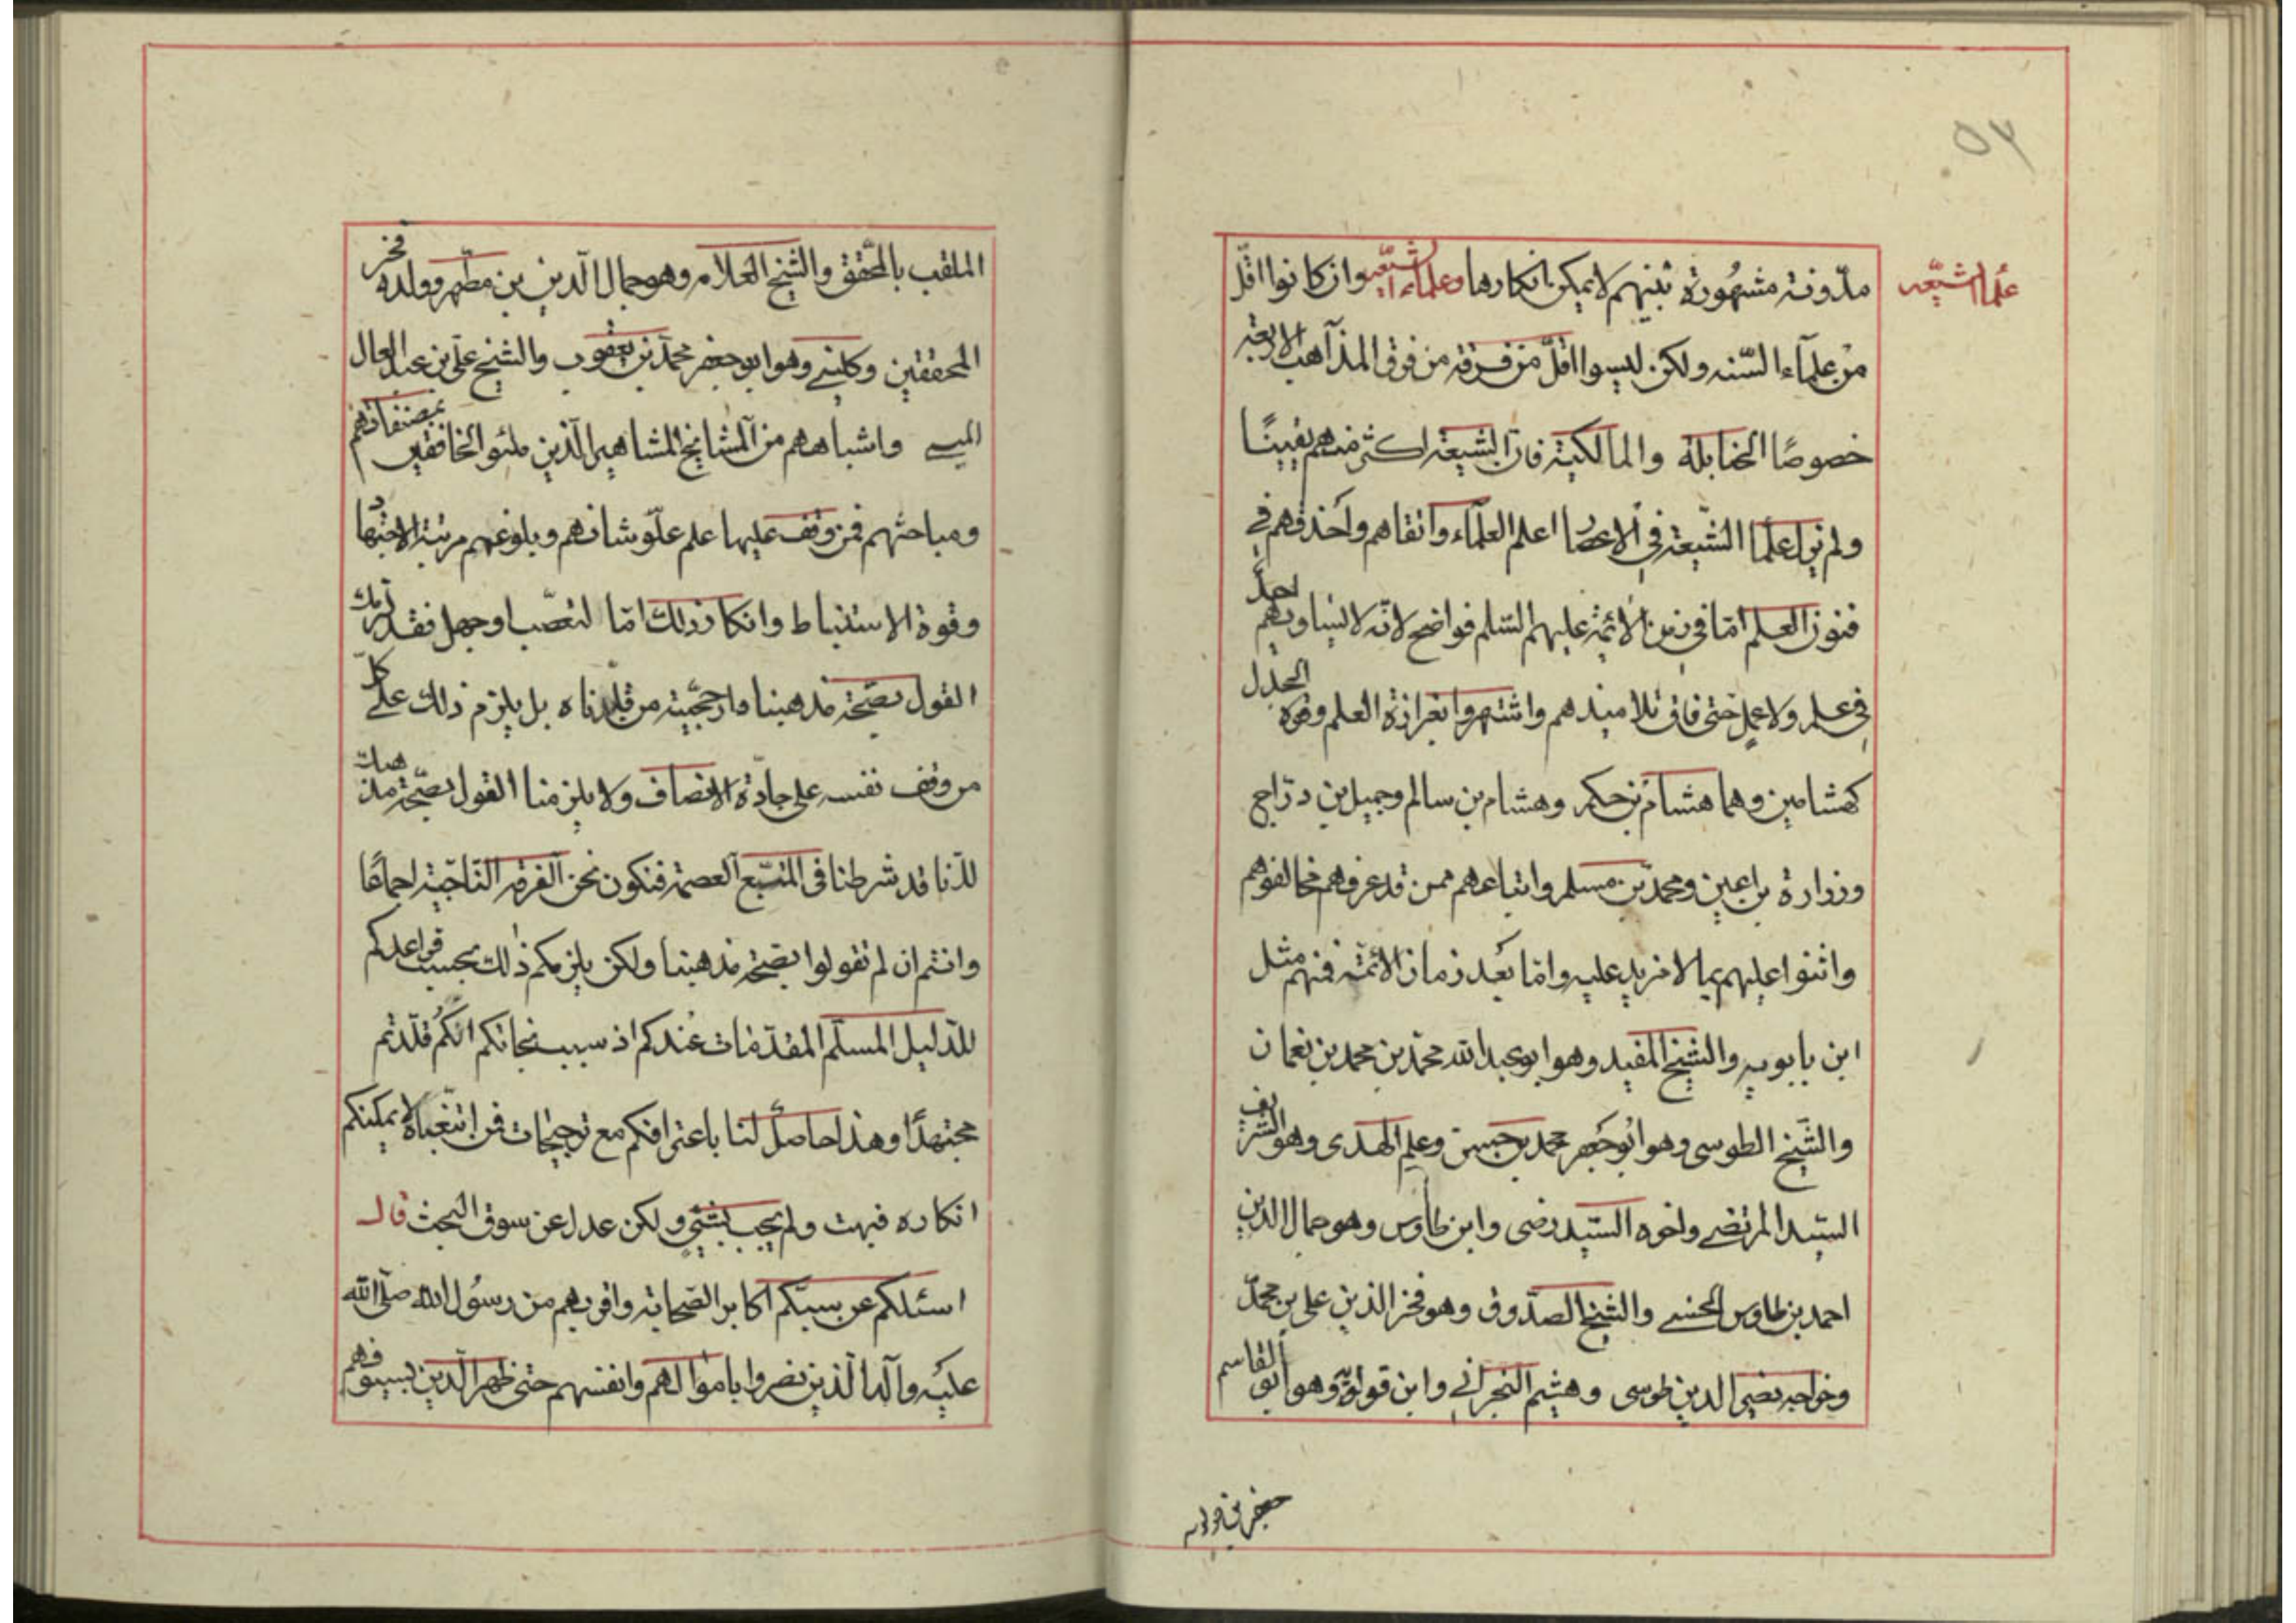 ٥٧
علماء شيّعه
مدّونة مشهُورة بَينهم لا يمكن انكارها وعلماء الشيّعه وان كانوا اقلّ
من علمآء السّنه ولكن ليسوا اقلّ من فرقه من فرق المذآهب الاربعة
خصوصًا الحنابلة والمالكية فان الشيعة اكثر منهم يقينًا
ولم يزل علماء الشّيعة فى الاعصار اعلم العلمآء واتقاهم واحذقهم فى
فنون العلم امّا فى زمن الائمّة عليهم السّلم فواضح لانّه لا يساويهم احدٌ
فى علم ولا عمل حتى فاق تلاميذهم واشتهروا بغزارة العلم وقوة الجدل
كهشامين وهما هشام بن حكم وهشام بن سالم وجميل بن درّاج
وزرارة بن اعين ومحمد بن مسلم واتباعهم ممن قد عرفهم مخالفوهم
واثنوا عليهم بما لا مزيد عليه وامّا بَعد زمان الائمّة فمنهم مثل
ابن بابويه والشيخ المفيد وهو ابو عبد الله محمّد بن محمد بن نعمان
والشّيخ الطوسى وهو ابُو جعفر محمد بن حسن وعلم الهدى وهو الشريف
السّيد المرتضى واخوه السّيد رضى وابن طاوس وهو جمال الدين
احمد بن طاوس الحسنى والشيخ الصدّوق وهو فخر الدين على بن محمّد
وخواجه نصير الدين طوسى وهيثم البحرانى وابن قولويه وهو ابو القاسم
جعفر بن قولويه
الملقب بالمحّقق والشيخ العلامه وهو جمال الدّين بن مطّهر وولده فخر
المحققين وكلينى وهو ابو جعفر محمّد بن يعقوب والشيخ علّى بن عبد العال
الميسى واشباههم من المشايخ المشاهير الّذين ملئوا الخافقين بمصنفاتهم
ومباحثهم فمن وقف عليها علم علّو شانهم وبلوغهم مرتبة الاجتهاد
وقوة الاستنباط وانكار ذلك امّا لتعصّب او جهل فقد لزمك
القول بصّحة مذهبنا وارجحّية من قلّدناه بل يلزم ذلك على كلّ
من وقف نفسه على جادّة الانصاف ولا يلزمنا القول بصّحة مذهبك
لانّا قد شرطنا فى المتّبع العصمة فنكون نحن الفرقه النّاجية اجماعًا
وانتم ان لم تقولوا بصحّة مذهبنا ولكن يلزمكم ذلك بحسب قواعدكم
للدّليل المسلّم المقدّمات عندكم اذ سبب نجاتكم انّكم قلّدتم
مجتهدًا وهذا حاصل لنا باعترافكم مع ترجيحات فمن اتّبعناه لا يمكنكم
انكاره فبهت ولم يجب بشئٍ ولكن عدل عن سوق البحث قال
اسئلكم عن سبّكم اكابر الصّحابة واقربهم من رسُول الله صلّى الله
عليه وآله الّذين نصروا باموالهم وانفسهم حتى ظهر الدّين بسيوفهم